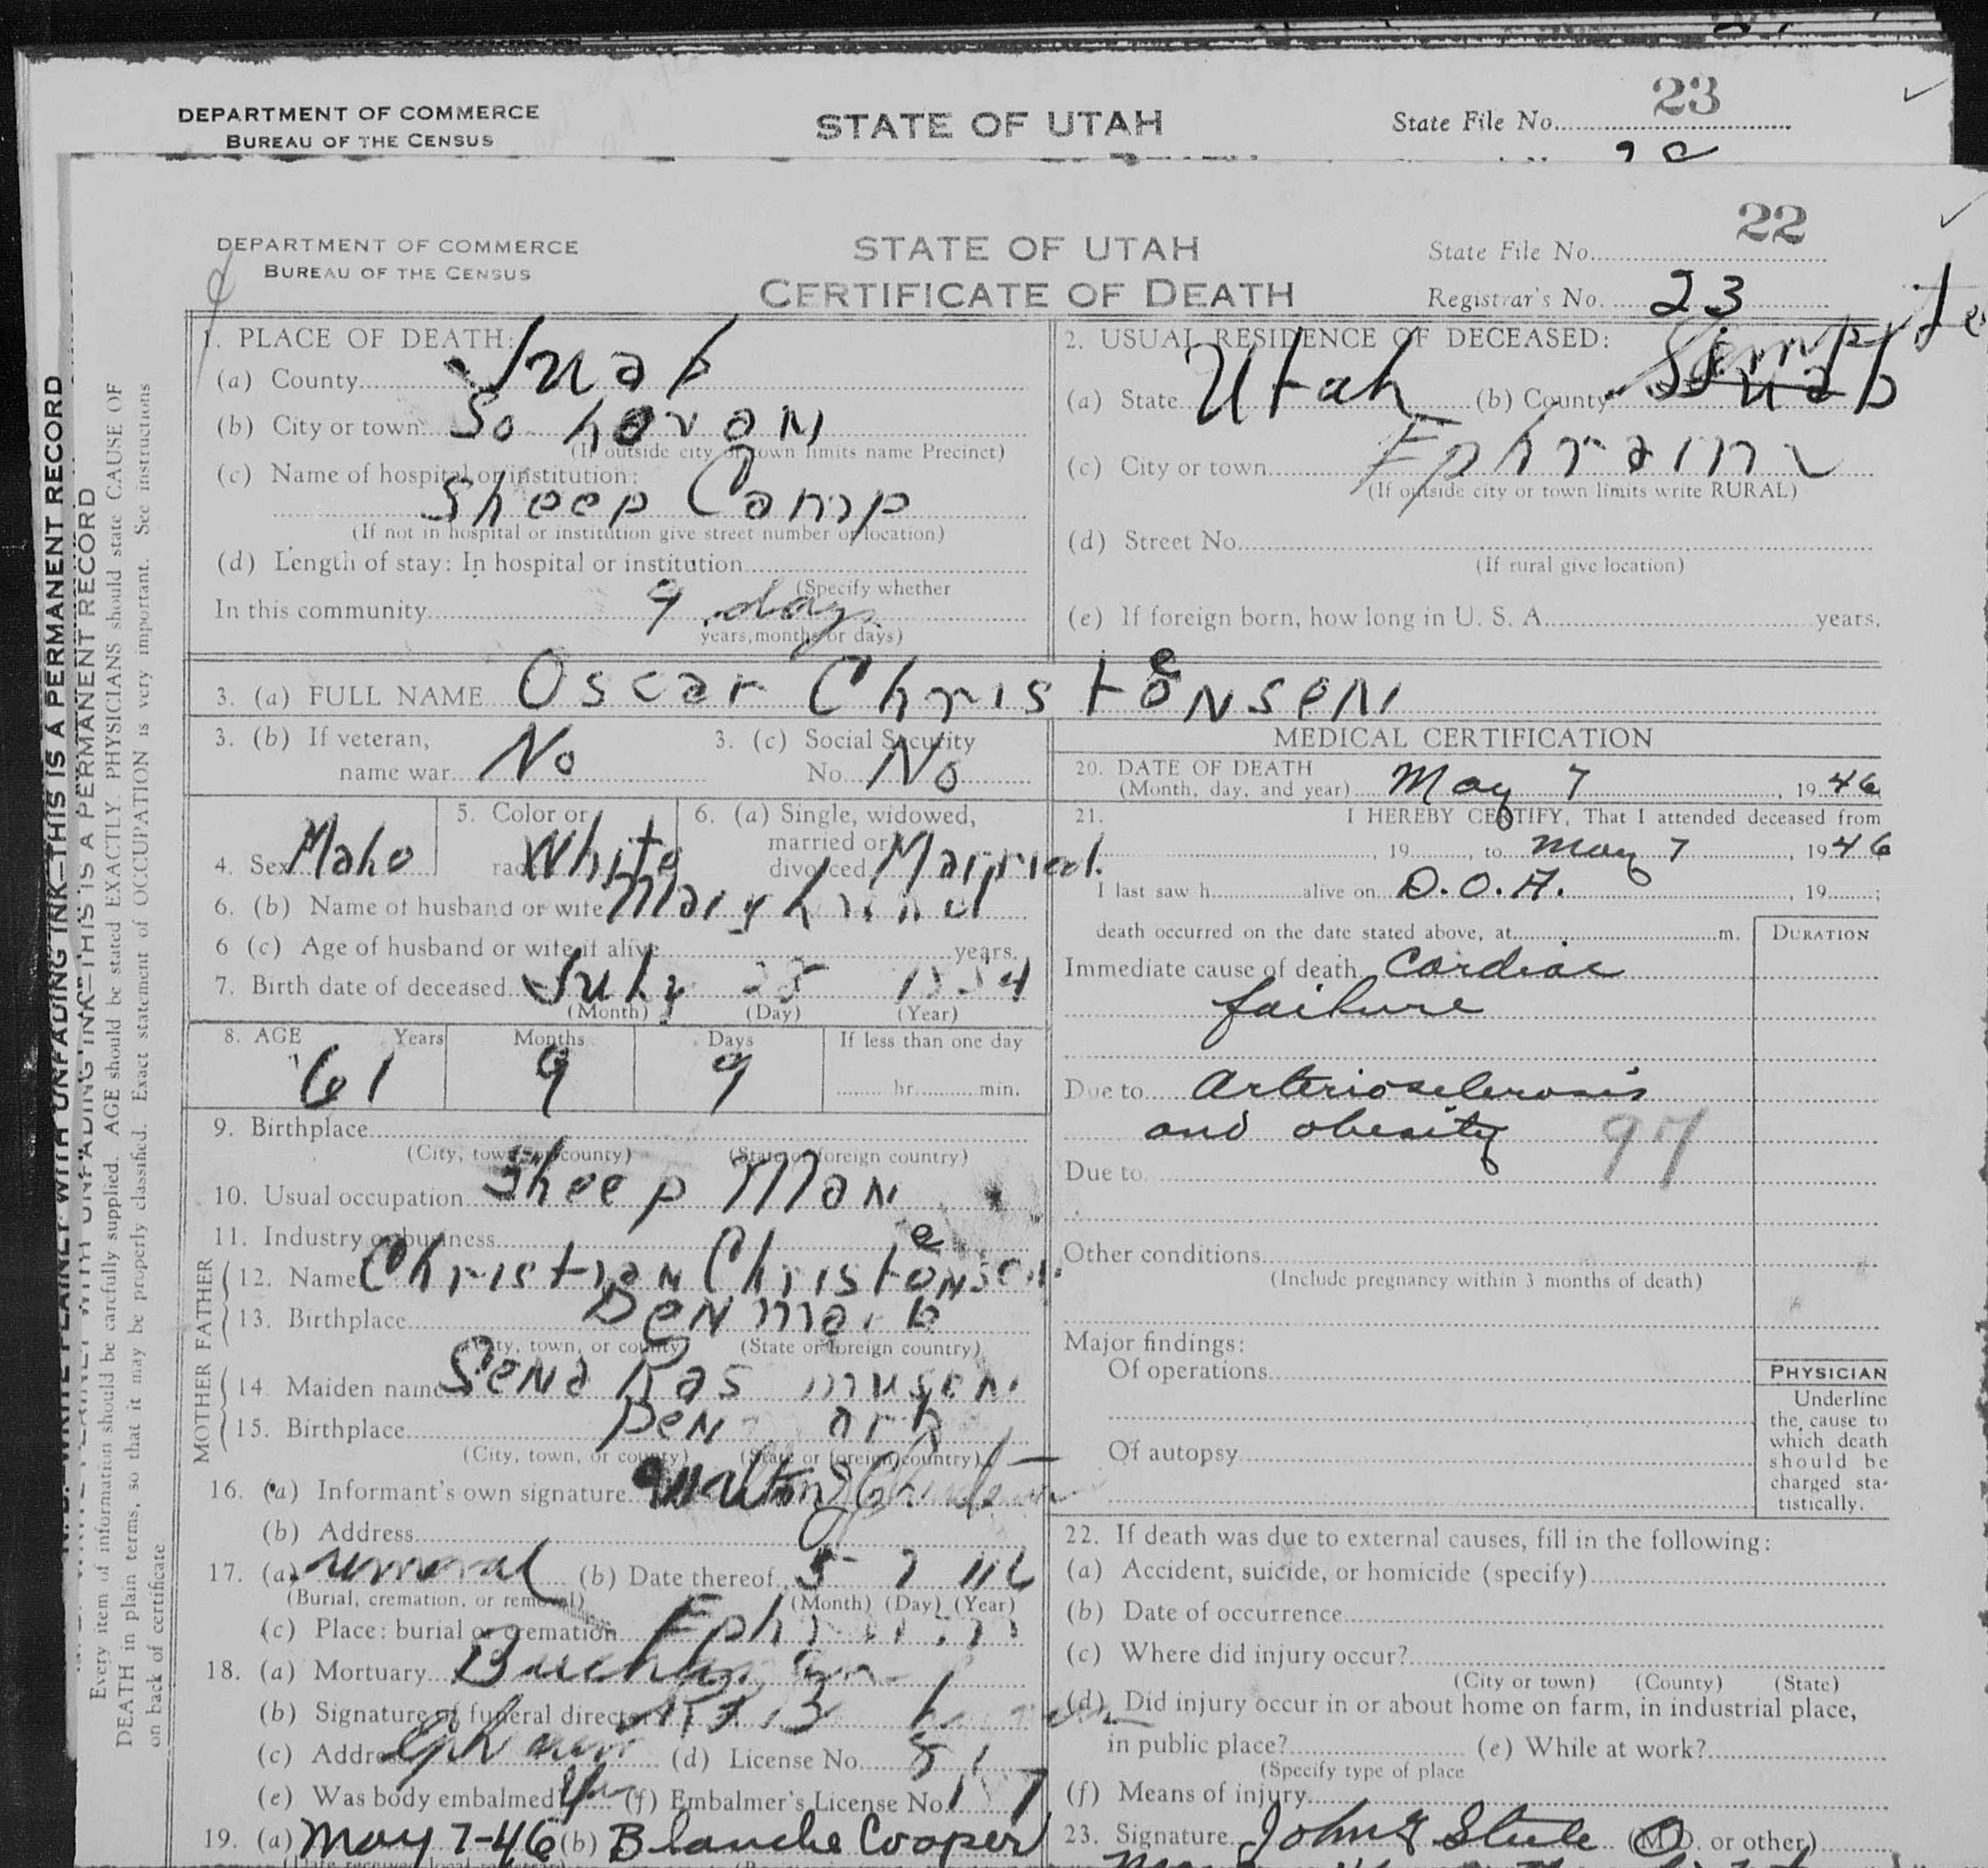 DEPARTMENT OF COMMERCE
BUREAU OF THE CENSUS
STATE OF UTAH
State File No. 23
DEPARTMENT OF COMMERCE
BUREAU OF THE CENSUS
STATE OF UTAH
CERTIFICATE OF DEATH
State File No. 22
Registrar's No. 23
THIS IS A PERMANENT RECORD
THIS IS A PERMANENT RECORD
Every item of information should be carefully supplied. AGE should be stated EXACTLY. PHYSICIANS should state CAUSE OF
DEATH in plain terms, so that it may be properly classified. Exact statement of OCCUPATION is very important. See instructions
on back of certificate
1. PLACE OF DEATH:
(a) County Juab
(b) City or town So Levan
(If outside city or town limits name Precinct)
(c) Name of hospital or institution:
Sheep Camp
(If not in hospital or institution give street number or location)
(d) Length of stay: In hospital or institution
(Specify whether
In this community 9 days
years, months or days)
2. USUAL RESIDENCE OF DECEASED:
(a) State Utah (b) County Juab Sanpete
(c) City or town Ephraim
(If outside city or town limits write RURAL)
(d) Street No.
(If rural give location)
(e) If foreign born, how long in U. S. A. years.
3. (a) FULL NAME Oscar Christensen
3. (b) If veteran,
name war No
3. (c) Social Security
No. No
4. Sex Male
5. Color or
race White
6. (a) Single, widowed,
married or
divorced Married
6. (b) Name of husband or wife Mary
6 (c) Age of husband or wife if alive years.
7. Birth date of deceased July
(Month) (Day) (Year)
8. AGE Years Months Days If less than one day
61 9 9 hr. min.
9. Birthplace
(City, town, or county) (State or foreign country)
10. Usual occupation Sheep Man
11. Industry or business
FATHER
12. Name Christian Christensen
13. Birthplace Denmark
(City, town, or county) (State or foreign country)
MOTHER
14. Maiden name Sena Rasmusen
15. Birthplace Denmark
(City, town, or county) (State or foreign country)
16. (a) Informant's own signature
(b) Address
17. (a) removal (b) Date thereof 5 7
(Burial, cremation, or removal) (Month) (Day) (Year)
(c) Place: burial or cremation Ephraim
18. (a) Mortuary
(b) Signature of funeral director
(c) Address Ephraim (d) License No.
(e) Was body embalmed (f) Embalmer's License No.
19. (a) May 7-46 (b) Blanche Cooper
MEDICAL CERTIFICATION
20. DATE OF DEATH
(Month, day, and year) May 7, 1946
21. I HEREBY CERTIFY, That I attended deceased from
, 19 , to May 7, 1946
I last saw h alive on D.O.A., 19 ;
death occurred on the date stated above, at m.
DURATION
Immediate cause of death Cardiac
failure
Due to Arteriosclerosis
and obesity 97
Due to
Other conditions
(Include pregnancy within 3 months of death)
Major findings:
Of operations
Of autopsy
PHYSICIAN
Underline
the cause to
which death
should be
charged sta-
tistically.
22. If death was due to external causes, fill in the following:
(a) Accident, suicide, or homicide (specify)
(b) Date of occurrence
(c) Where did injury occur?
(City or town) (County) (State)
(d) Did injury occur in or about home on farm, in industrial place,
in public place? (e) While at work?
(Specify type of place
(f) Means of injury
23. Signature John G Steele (M.D. or other)